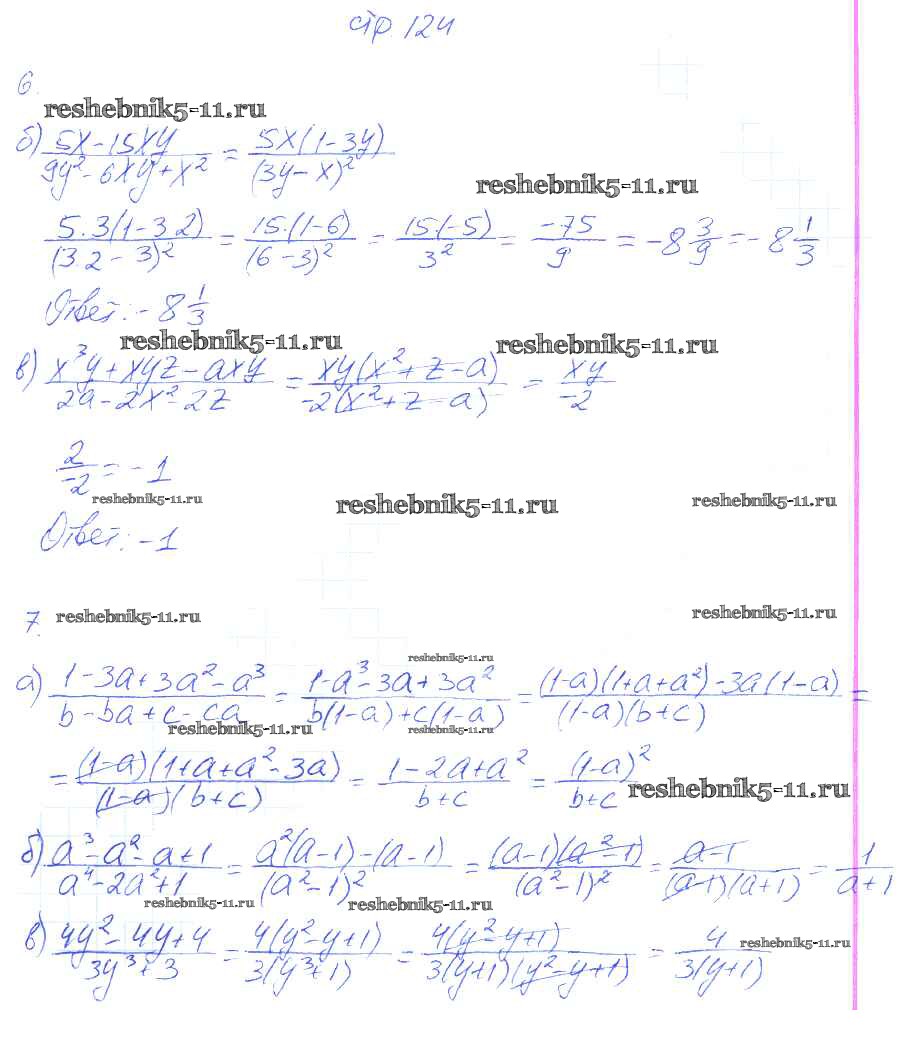 стр. 124
6.
reshebnik5-11.ru
б) (5x-15xy)/(9y²-6xy+x²) = (5x(1-3y))/((3y-x)²)
reshebnik5-11.ru
(5·3(1-3·2))/((3·2-3)²) = (15·(1-6))/((6-3)²) = (15·(-5))/(3²) = (-75)/9 = -8 3/9 = -8 1/3
Ответ: -8 1/3
reshebnik5-11.ru reshebnik5-11.ru
в) (x³y+xyz-axy)/(2a-2x²-2z) = (xy(x²+z-a))/(-2(x²+z-a)) = (xy)/(-2)
2/(-2) = -1
reshebnik5-11.ru reshebnik5-11.ru reshebnik5-11.ru
Ответ: -1
7. reshebnik5-11.ru reshebnik5-11.ru
reshebnik5-11.ru
а) (1-3a+3a²-a³)/(b-ba+c-ca) = (1-a³-3a+3a²)/(b(1-a)+c(1-a)) = ((1-a)(1+a+a²)-3a(1-a))/((1-a)(b+c)) =
reshebnik5-11.ru reshebnik5-11.ru
= ((1-a)(1+a+a²-3a))/((1-a)(b+c)) = (1-2a+a²)/(b+c) = ((1-a)²)/(b+c)
reshebnik5-11.ru
б) (a³-a²-a+1)/(a⁴-2a²+1) = (a²(a-1)-(a-1))/((a²-1)²) = ((a-1)(a²-1))/((a²-1)²) = (a-1)/((a-1)(a+1)) = 1/(a+1)
reshebnik5-11.ru reshebnik5-11.ru
в) (4y²-4y+4)/(3y³+3) = (4(y²-y+1))/(3(y³+1)) = (4(y²-y+1))/(3(y+1)(y²-y+1)) = 4/(3(y+1))
reshebnik5-11.ru